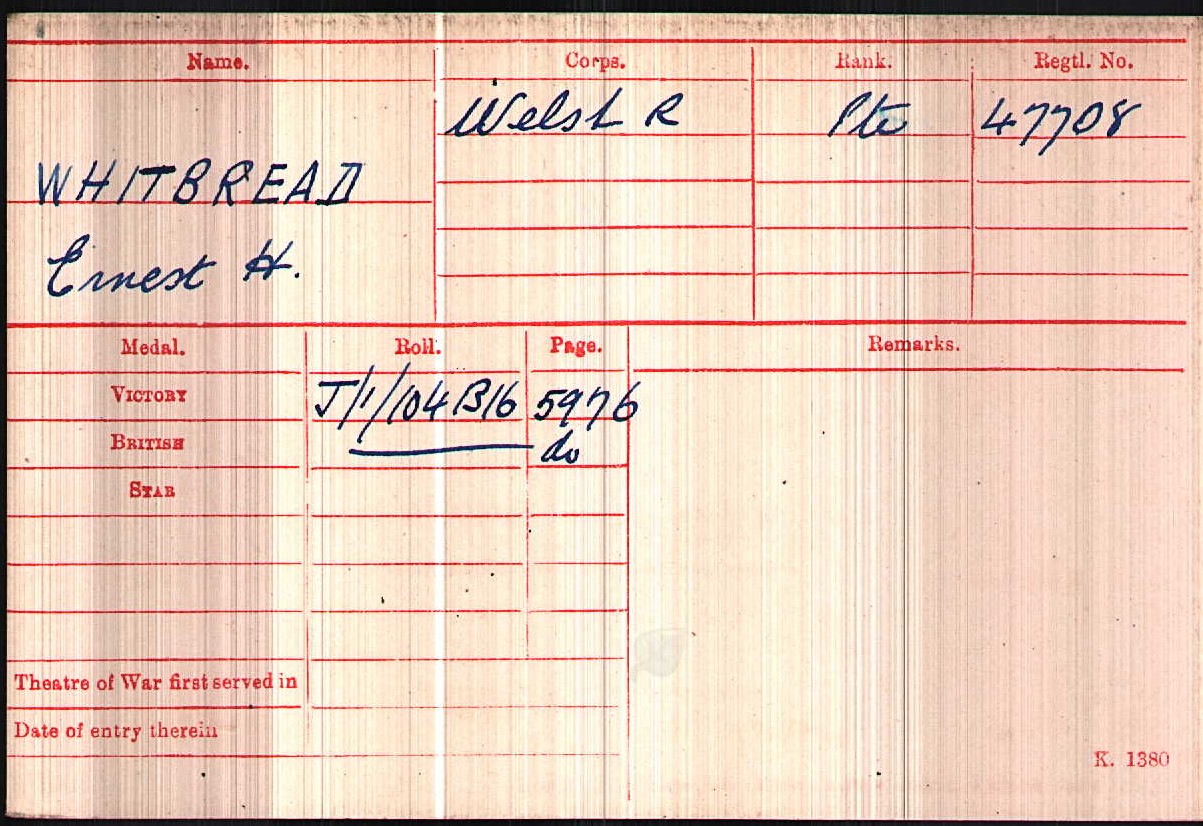 Name. Corps. Rank. Regtl. No.
Welsh R Pte 47708
WHITBREAD
Ernest H.
Medal. Roll. Page. Remarks.
VICTORY J/1/104 B16 5976
BRITISH do
STAR
Theatre of War first served in
Date of entry therein
K. 1380